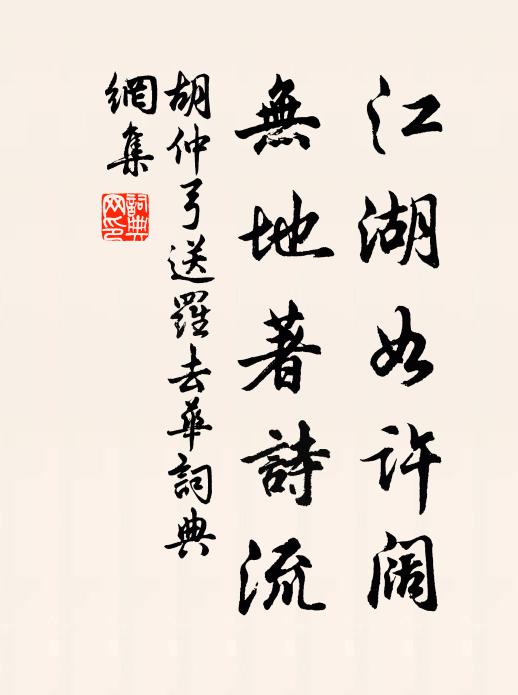 江湖如许阔
無地著詩流
胡仲弓送羅去華詞典
網集
詞典网印